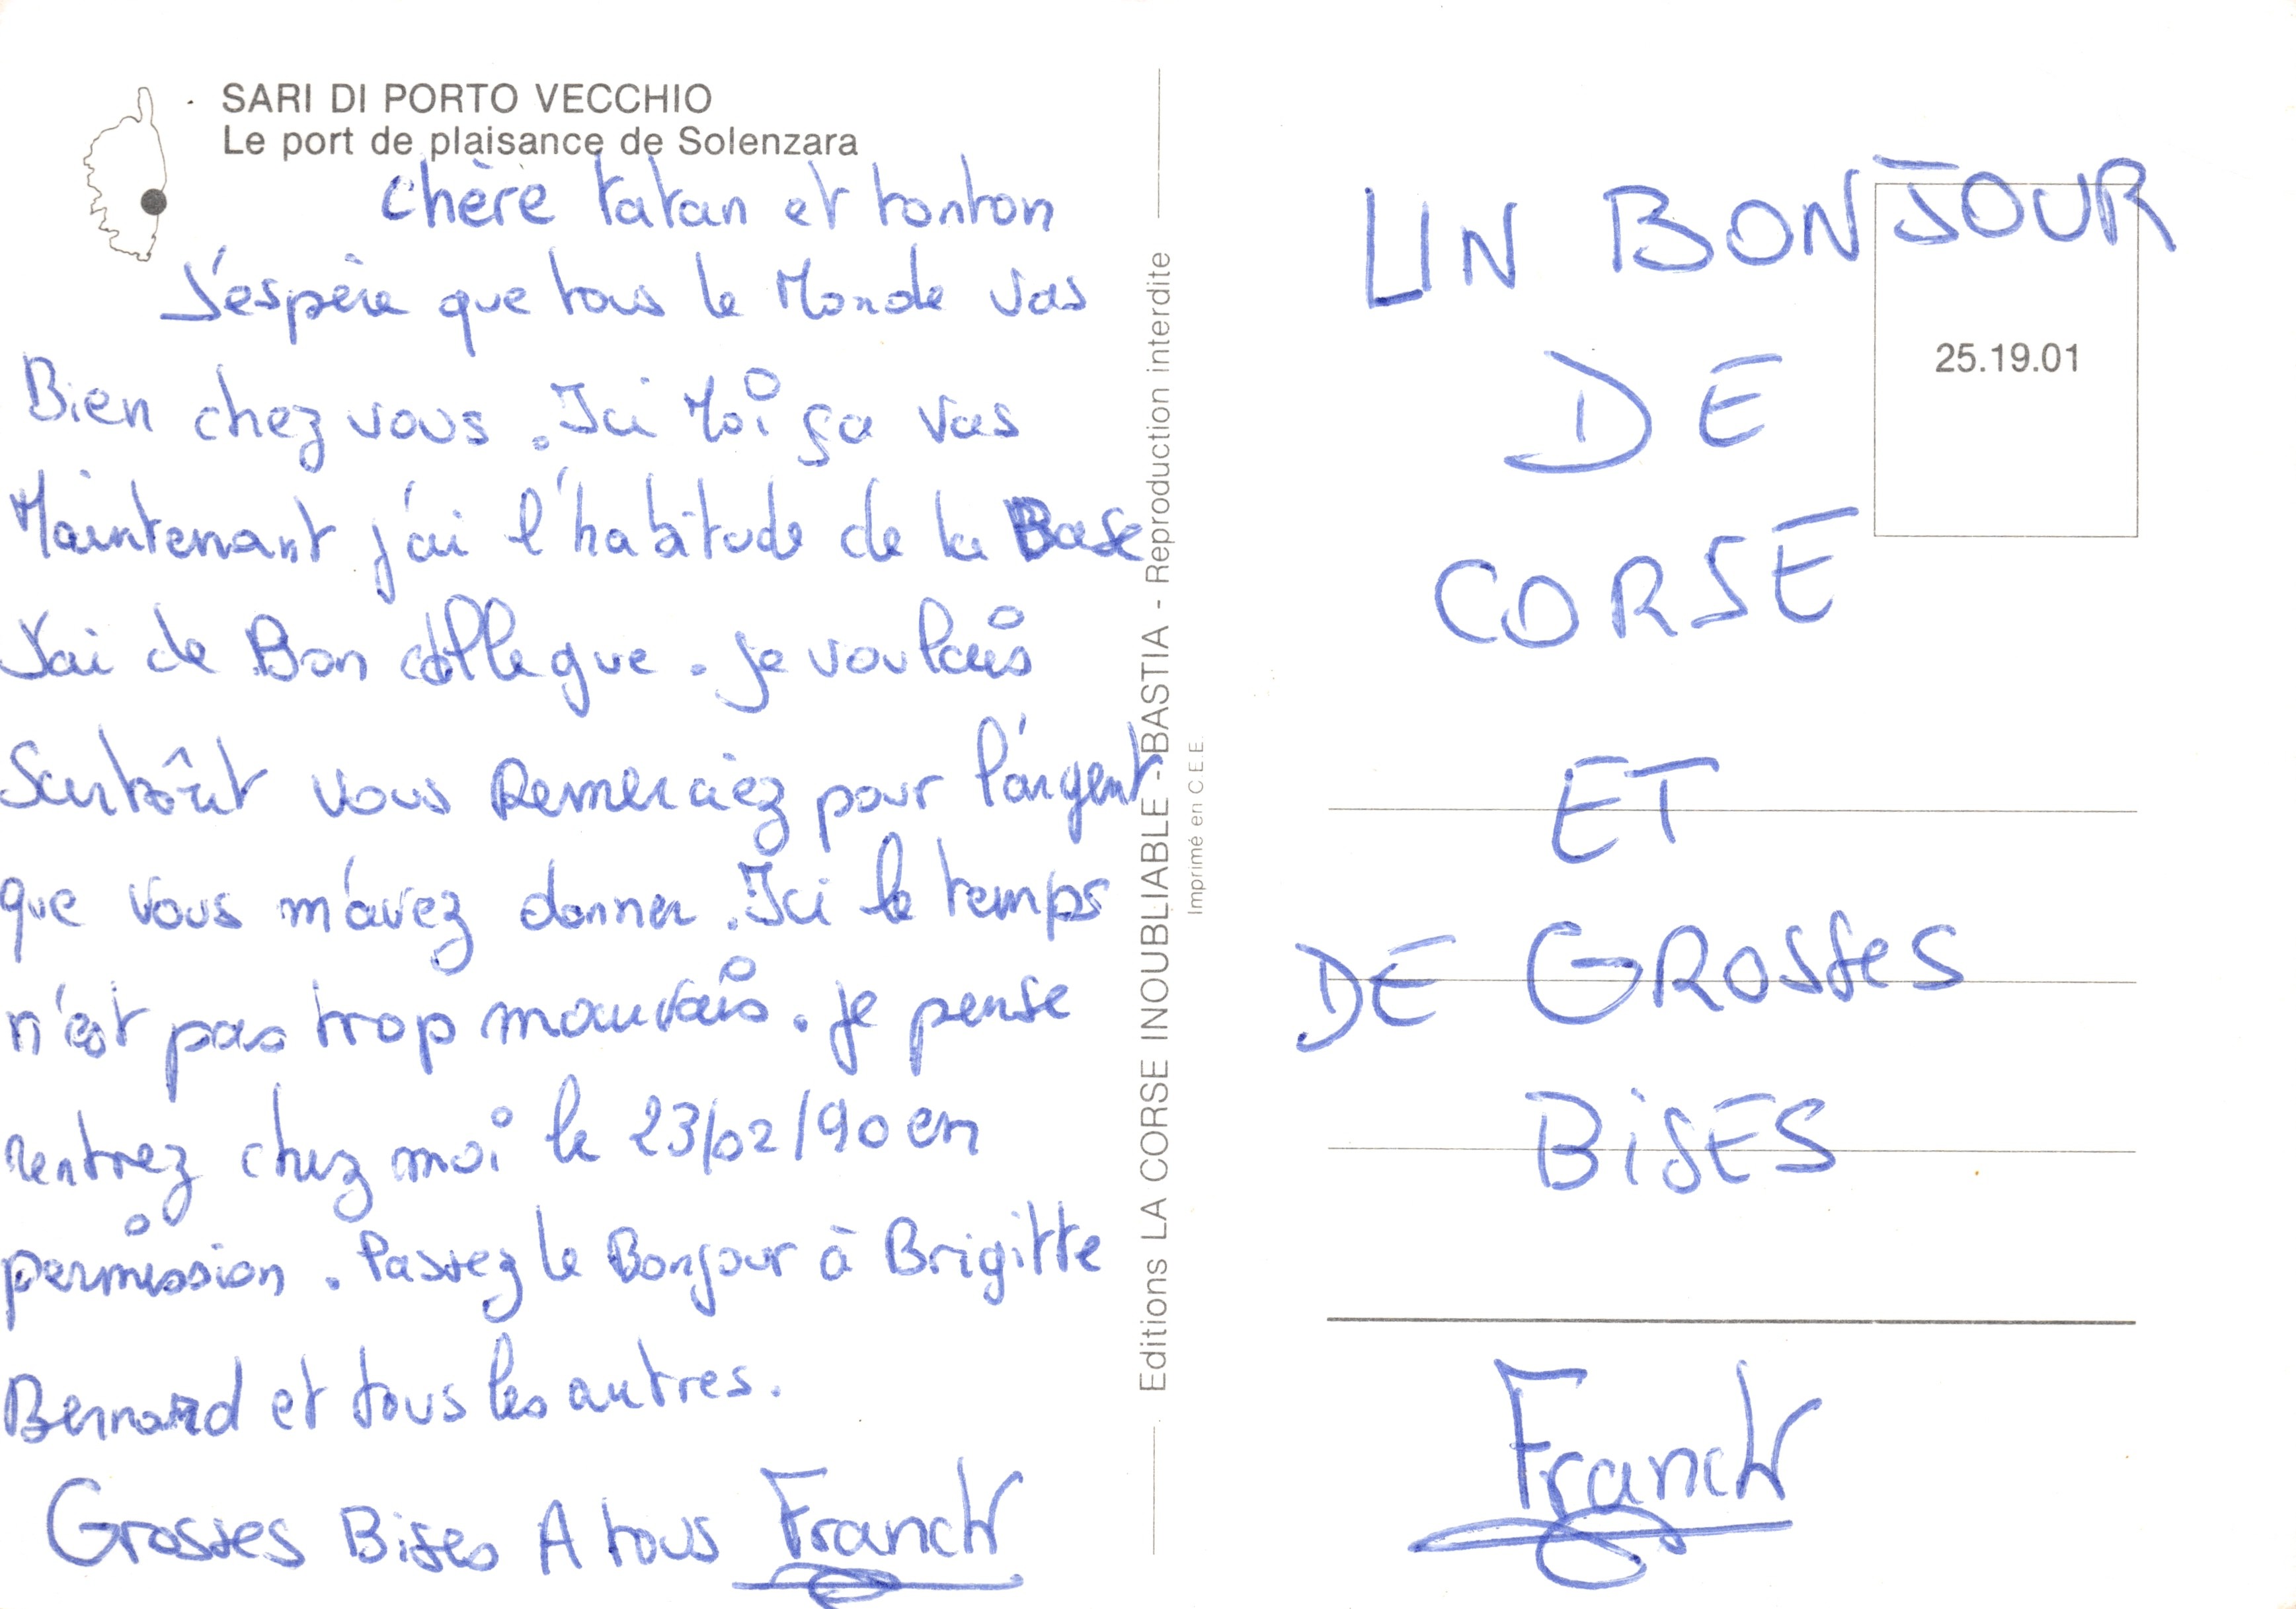 SARI DI PORTO VECCHIO
Le port de plaisance de Solenzara
Chère tatan et tonton
J'espère que tous le Monde vas
Bien chez vous. Ici Moi ça vas
Maintenant j'ai l'habitude de la Base
J'ai de Bon collegue. je voulais
Surtoût vous Remerciez pour l'argent
que vous m'avez donner. Ici le temps
n'est pas trop mauvais. je pense
rentrez chez moi le 23/02/90 en
permission. Passez le Bonjour à Brigitte
Bernard et tous les autres.
Grosses Bises A tous Franck
Editions LA CORSE INOUBLIABLE - BASTIA - Reproduction interdite
Imprimé en C E E
UN BONJOUR
25.19.01
DE
CORSE
ET
DE GROSSES
BiSES
Franck